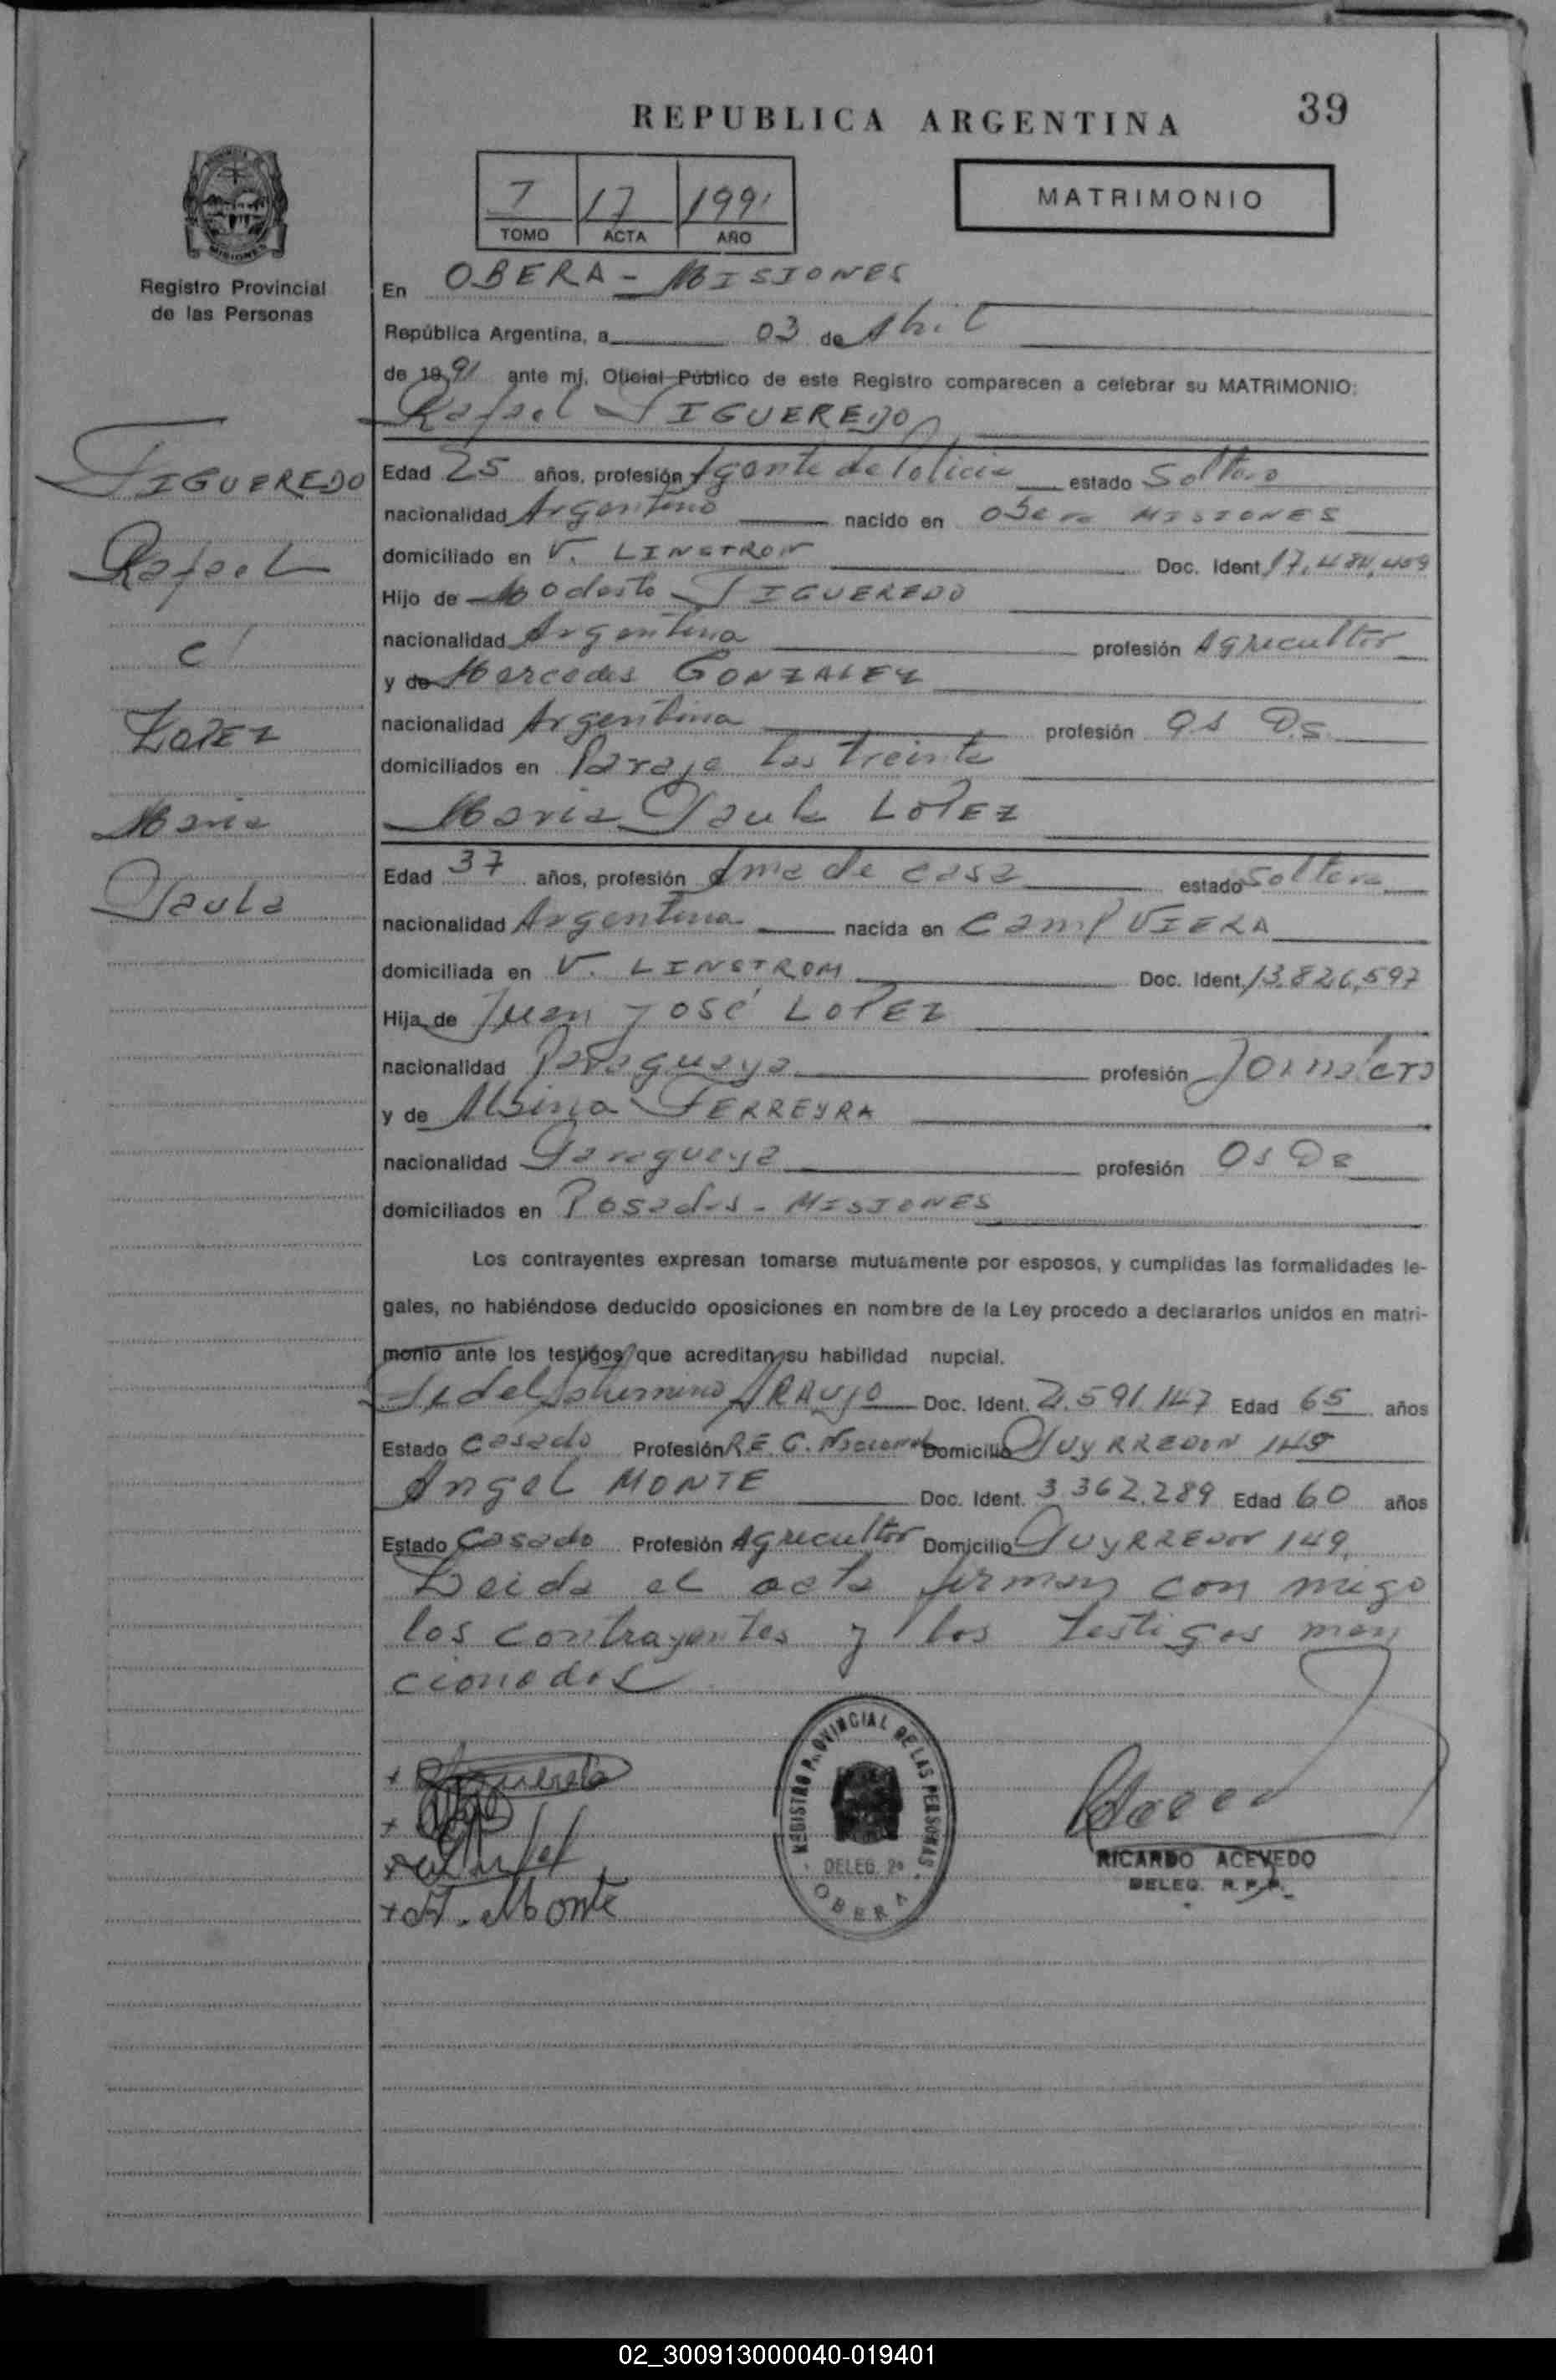 REPUBLICA ARGENTINA
39
MATRIMONIO
7 17 1991
TOMO ACTA AÑO
Registro Provincial
de las Personas
En OBERA - MISIONES
República Argentina, a 03 de Abril
de 1991 ante mí, Oficial Público de este Registro comparecen a celebrar su MATRIMONIO:
Rafael FIGUEREDO
FIGUEREDO
Rafael
c/
LOPEZ
Maria
Paula
Edad 25 años, profesión Agente de Policia estado Soltero
nacionalidad Argentino nacido en Obera MISIONES
domiciliado en V. LINSTRON Doc. Ident. 17.484.459
Hijo de Modesto FIGUEREDO
nacionalidad Argentina profesión Agricultor
y de Mercedes GONZALEZ
nacionalidad Argentina profesión Q.s Ds.
domiciliados en Paraje Los Treinta
Maria Paula LOPEZ
Edad 37 años, profesión Ama de casa estado Soltera
nacionalidad Argentina nacida en Camp VIERA
domiciliada en V. LINSTROM Doc. Ident. 13.826.597
Hija de Juan José LOPEZ
nacionalidad Paraguaya profesión Jornalero
y de Albina FERREYRA
nacionalidad Paraguaya profesión Qs Ds
domiciliados en Posadas - MISIONES
Los contrayentes expresan tomarse mutuamente por esposos, y cumplidas las formalidades le-
gales, no habiéndose deducido oposiciones en nombre de la Ley procedo a declararlos unidos en matri-
monio ante los testigos que acreditan su habilidad nupcial.
Fidel ARAUJO Doc. Ident. 2.591.147 Edad 65 años
Estado Casado Profesión Domicilio PUYRREDON 149
Angel MONTE Doc. Ident. 3.362.289 Edad 60 años
Estado Casado Profesión Agricultor Domicilio PUYRREDON 149
Leida el acta firman con migo
los contrayentes y los testigos men
cionados
+ Figueredo
+ A. Monte
REGISTRO PROVINCIAL DE LAS PERSONAS
DELEG. 2ª
OBERA
RICARDO ACEVEDO
DELEG. R. P. P.
02_300913000040-019401